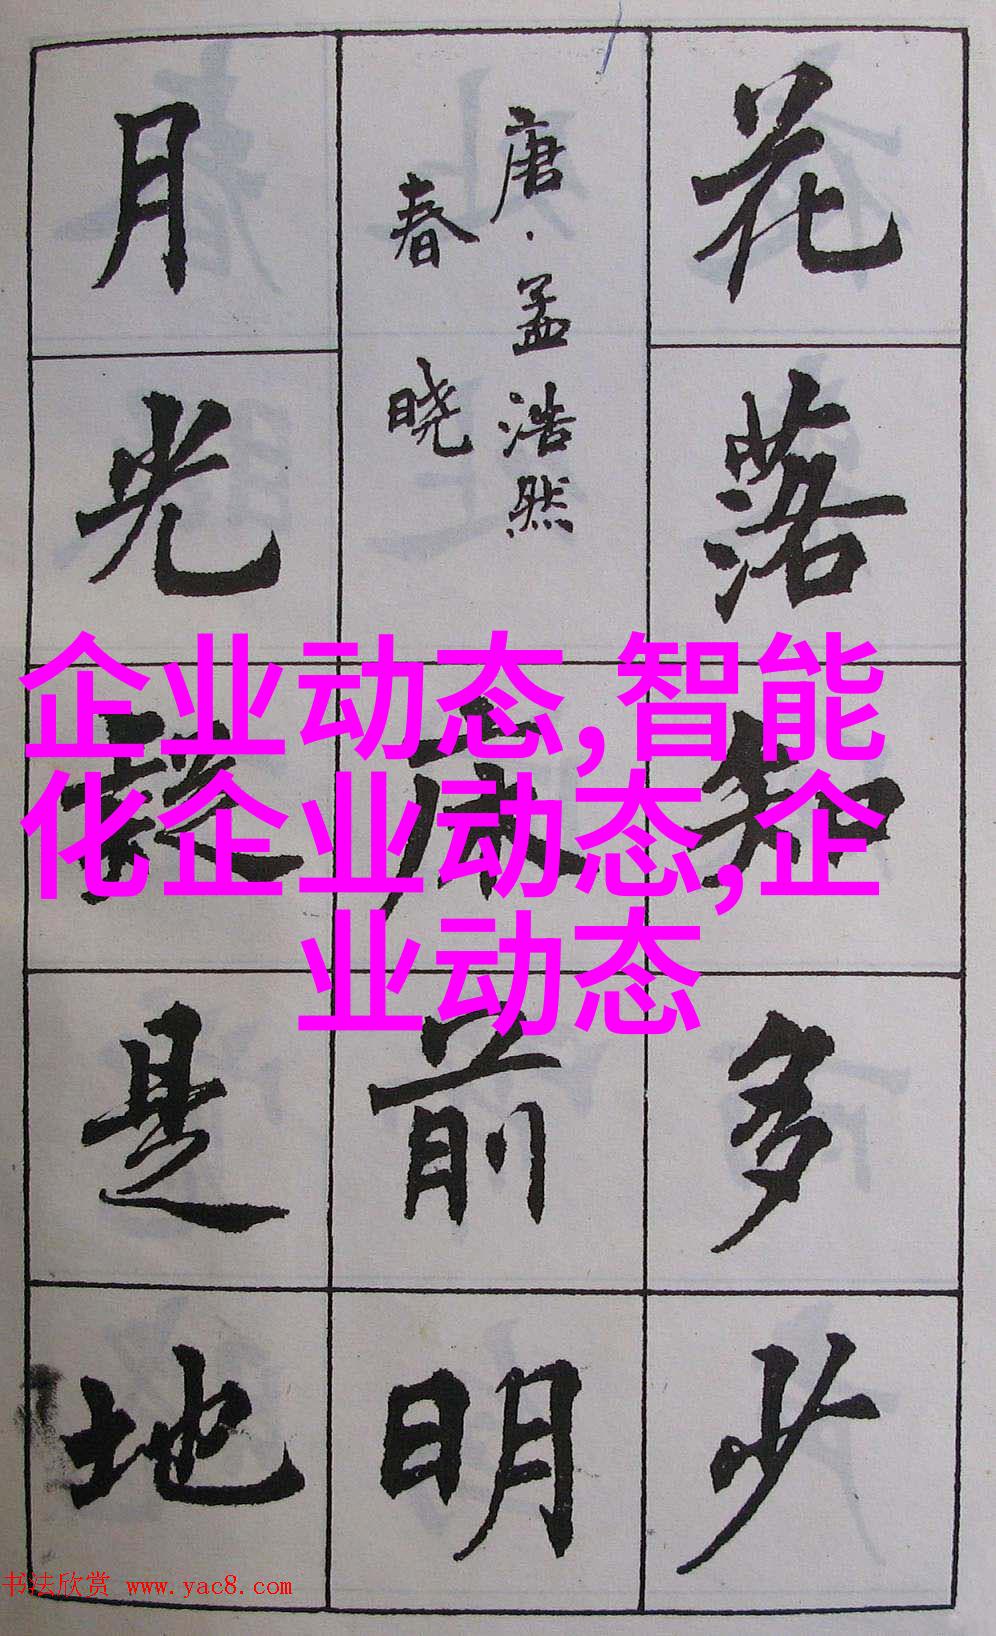 花落知多少
唐·孟浩然
春晓
床前明
月光疑是地
企业动态,智能
化企业动态,企
业动态
书法欣赏 www.yac8.com